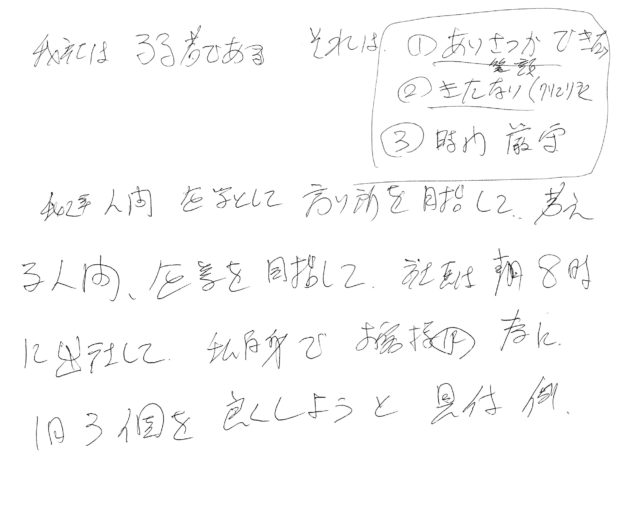 我社は 3る者である それは ① あいさつができない
笑顔
② きたない (クリンリネス
③ 時の 厳守
人間 企業として 行動を目指して、考え
る人間、企業を目指して、社長は 朝8時
に出社して、私自身で お客様の 為に、
1日3個を 良くしようと 具体 例、